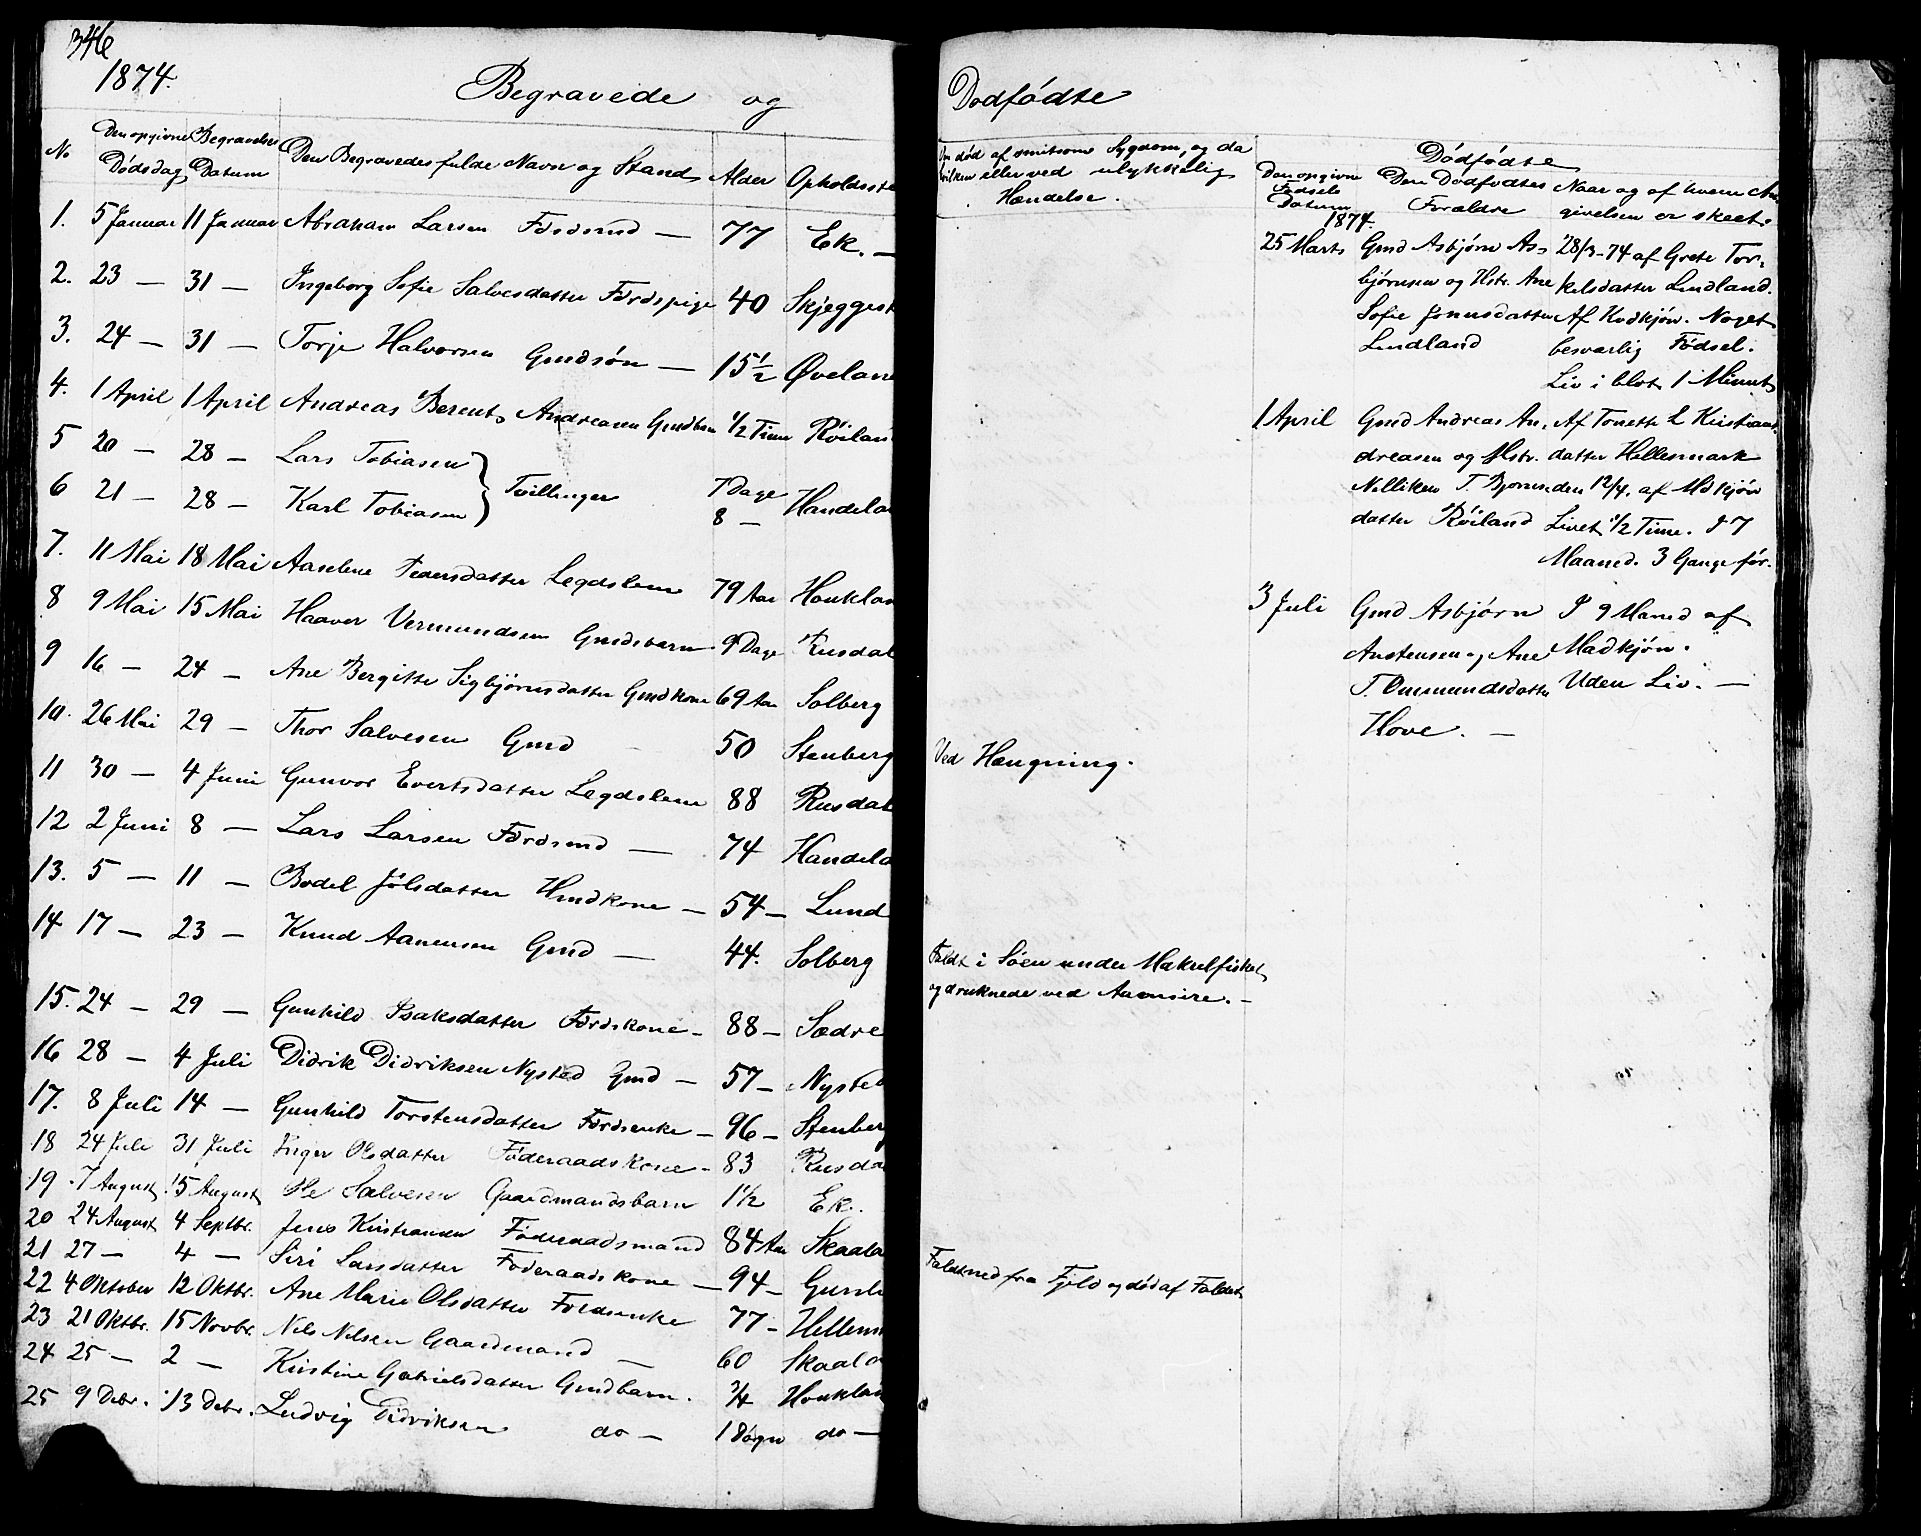 346
1874.
Begravede og
No Den opgivne Dødsdag Begravelses Datum Den Begravedes fulde Navn og Stand Alder Opholdsste
1. 5 Januar 11 Januar Abraham Larsen Fdrdsmd — 77 Ek. —
2. 23 — 31 — Ingeborg Sofie Salvesdatter Fdrdspige 40 Skjeggest
3. 24 — 31 — Torje Halvorsen Gmdsøn — 15½ Øvelan
4. 1 April 1 April Andreas Berent Andreasen Gmdbn ½ Time Røilan
5 20 — 28 — Lars Tobiasen } Tvillinger 7 Dage Handela
6 21 — 28 — Karl Tobiasen } 8 —
7. 11 Mai 18 Mai Aaselene Pedersdatter Legdslem 79 Aar Houklan
8 9 Mai 15 Mai Haaver Vermundsen Gmdsbarn 9 Dage Rusdal
9 16 — 24 — Ane Bergitte Sigbjørnsdatter Gmdkone 69 Aar Solberg
10. 26 Mai 29 — Thor Salvesen Gmd 50 Stenberg
11 30 — 4 Juni Gunvor Evertsdatter Legdslem 88 Rusdal
12 2 Juni 8 — Lars Larsen Fdrdsmd — 74 Handela
13. 5 — 11 — Bodel Jølsdatter Hmdkone — 54 — Lund
14 17 — 23 — Knud Aanensen Gmd — 44. Solberg
15. 24 — 29 — Gunhild Isaksdatter Fdrdskone — 88 — Sædre
16 28 — 4 Juli Didrik Didriksen Nysted Gmd — 57 — Nysted
17. 8 Juli 14 — Gunhild Torstensdatter Fdrdsenke — 96 — Stenberg
18 24 Juli 31 Juli Inger Olsdatter Føderaadskone — 83 Rusda
19 7 August 15 August Ole Salvesen Gaardmandsbarn 1½ Ek.
20 24 August 4 Septbr. Jens Kristiansen Føderaadsmand 84 Aar Skaala
21 27 — 4 — Siri Larsdatter Føderaadskone — 94 —
22 4 Oktober 12 Oktbr. Ane Marie Olsdatter Fdrdsenke 77 — Hellem
23 21 Oktbr. 15 Novbr. Nils Nilsen Gaardmand — 60 Skaala
24 25 — 2 — Kirstine Gabrielsdatter Gmdbarn. ¾ Houklan
25 9 Debr. 13 Debr. Ludvig Didriksen do — 1 Døgn do —
Dødfødte
Om død af smitsom Sygdom, og da
hvilken eller ved ulykkelig
Hændelse.
Dødfødte
Den opgivne Fødsels Datum Den Dødfødtes Forældre Naar og af hvem An-
givelsen er skeet.
1874.
25 Marts Gmd Asbjørn As- 28/3-74 af Grete Tor-
bjørnsen og Hstr. Ane kelsdatter Lindland.
Sofie Jonasdatter Af Kvdkjøn. Noget
Lindland besværlig Fødsel.
Liv i blot 1 Minut
1 April Gmd Andreas An- Af Tonette L Kristians-
dreasen og Hstr. datter Hellesmark
Nilliken T. Bjørns- den 12/4. af Mdkjøn
datter Røiland Livet ½ Time. I 7
Maaned. 3 Gange før.
3 Juli Gmd Asbjørn I 9 Maned af
Austensen og Ane Madkjøn.
T. Ommundsdatter Uden Liv. —
Hove. —
Ved Hængning.
Faldt i Søen under Makrelfisket
og druknede ved Aaensire. —
Faldt ned fra Fjeld og død af Faldet